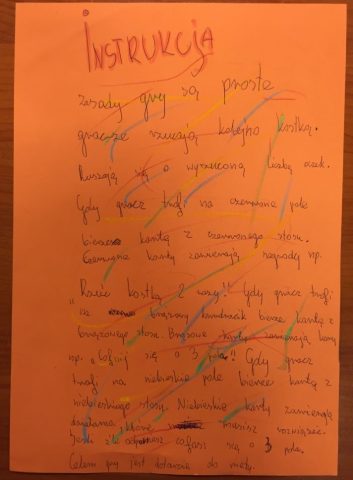 INSTRUKCJA
Zasady gry są proste
gracze rzucają kolejno kostką.
Ruszają się o wyrzuconą liczbę oczek.
Gdy gracz trafi na czerwone pole
bierze kartę z czerwonego stosu.
Czerwone karty zawierają nagrody np.
"Rzuć kostką 2 razy!! Gdy gracz trafi
na brązowy kwadracik bierze kartę z
brązowego stosu. Brązowe karty zawierają kary
np. "Cofnij się o 3 pola"! Gdy gracz
trafi na niebieskie pole bierze kartę z
niebieskiego stosu. Niebieskie karty zawierają
działania które musisz rozwiązać.
Jeśli źle cofasz się o 3 pola.
Celem gry jest dotarcie do mety.